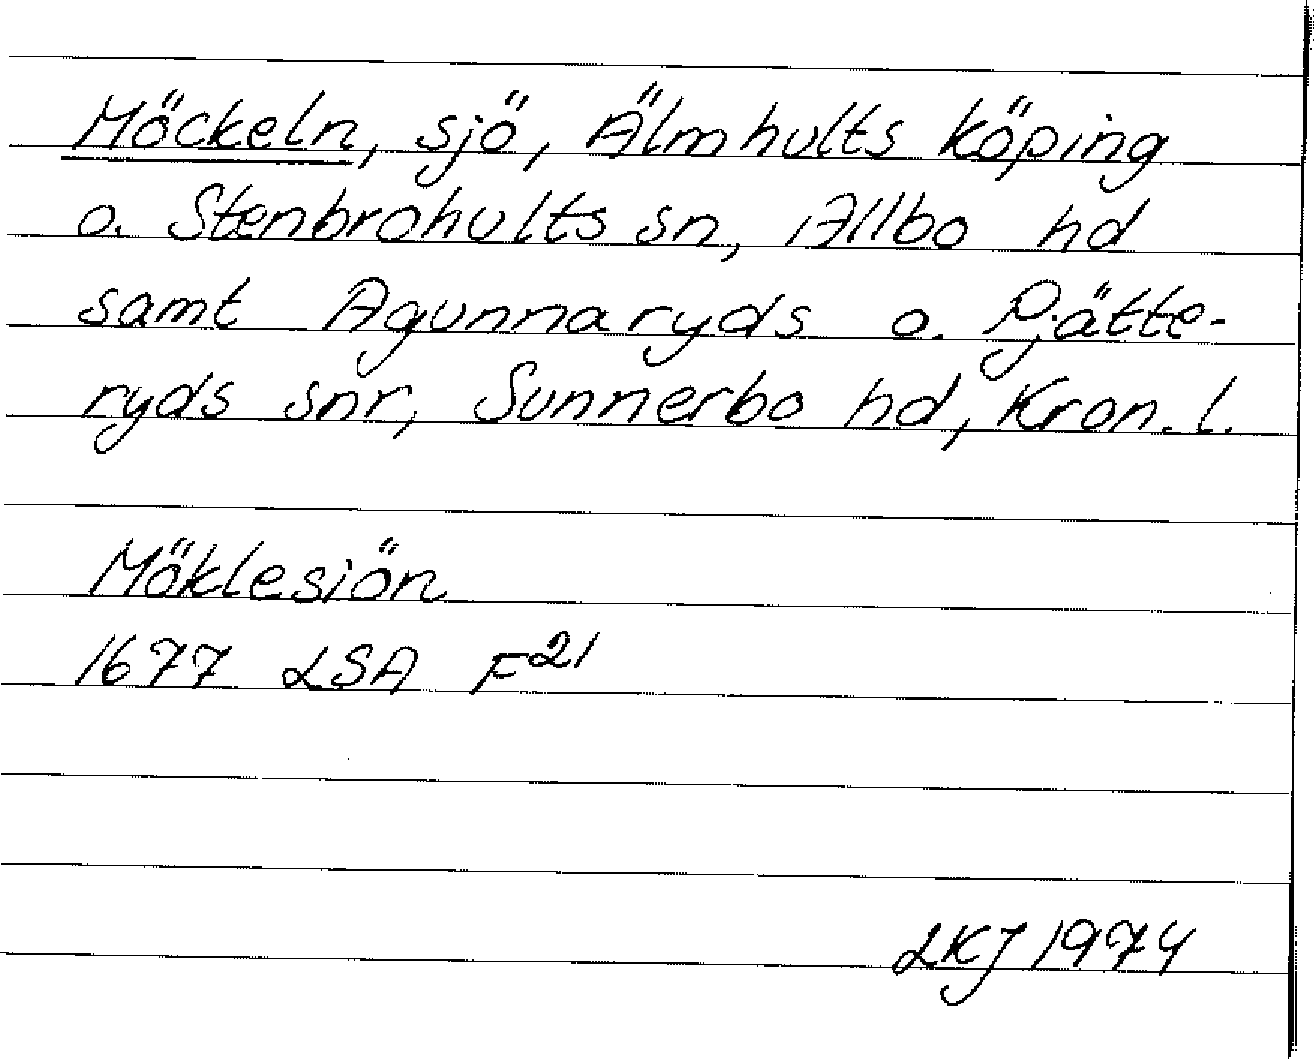 Möckeln, sjö, Älmhults köping
o. Stenbrohults sn, Allbo hd
samt Agunnaryds o. Pjätte-
ryds snr, Sunnerbo hd, Kron. l.
Möklesiön
1677 LSA F²¹
LKJ 1974